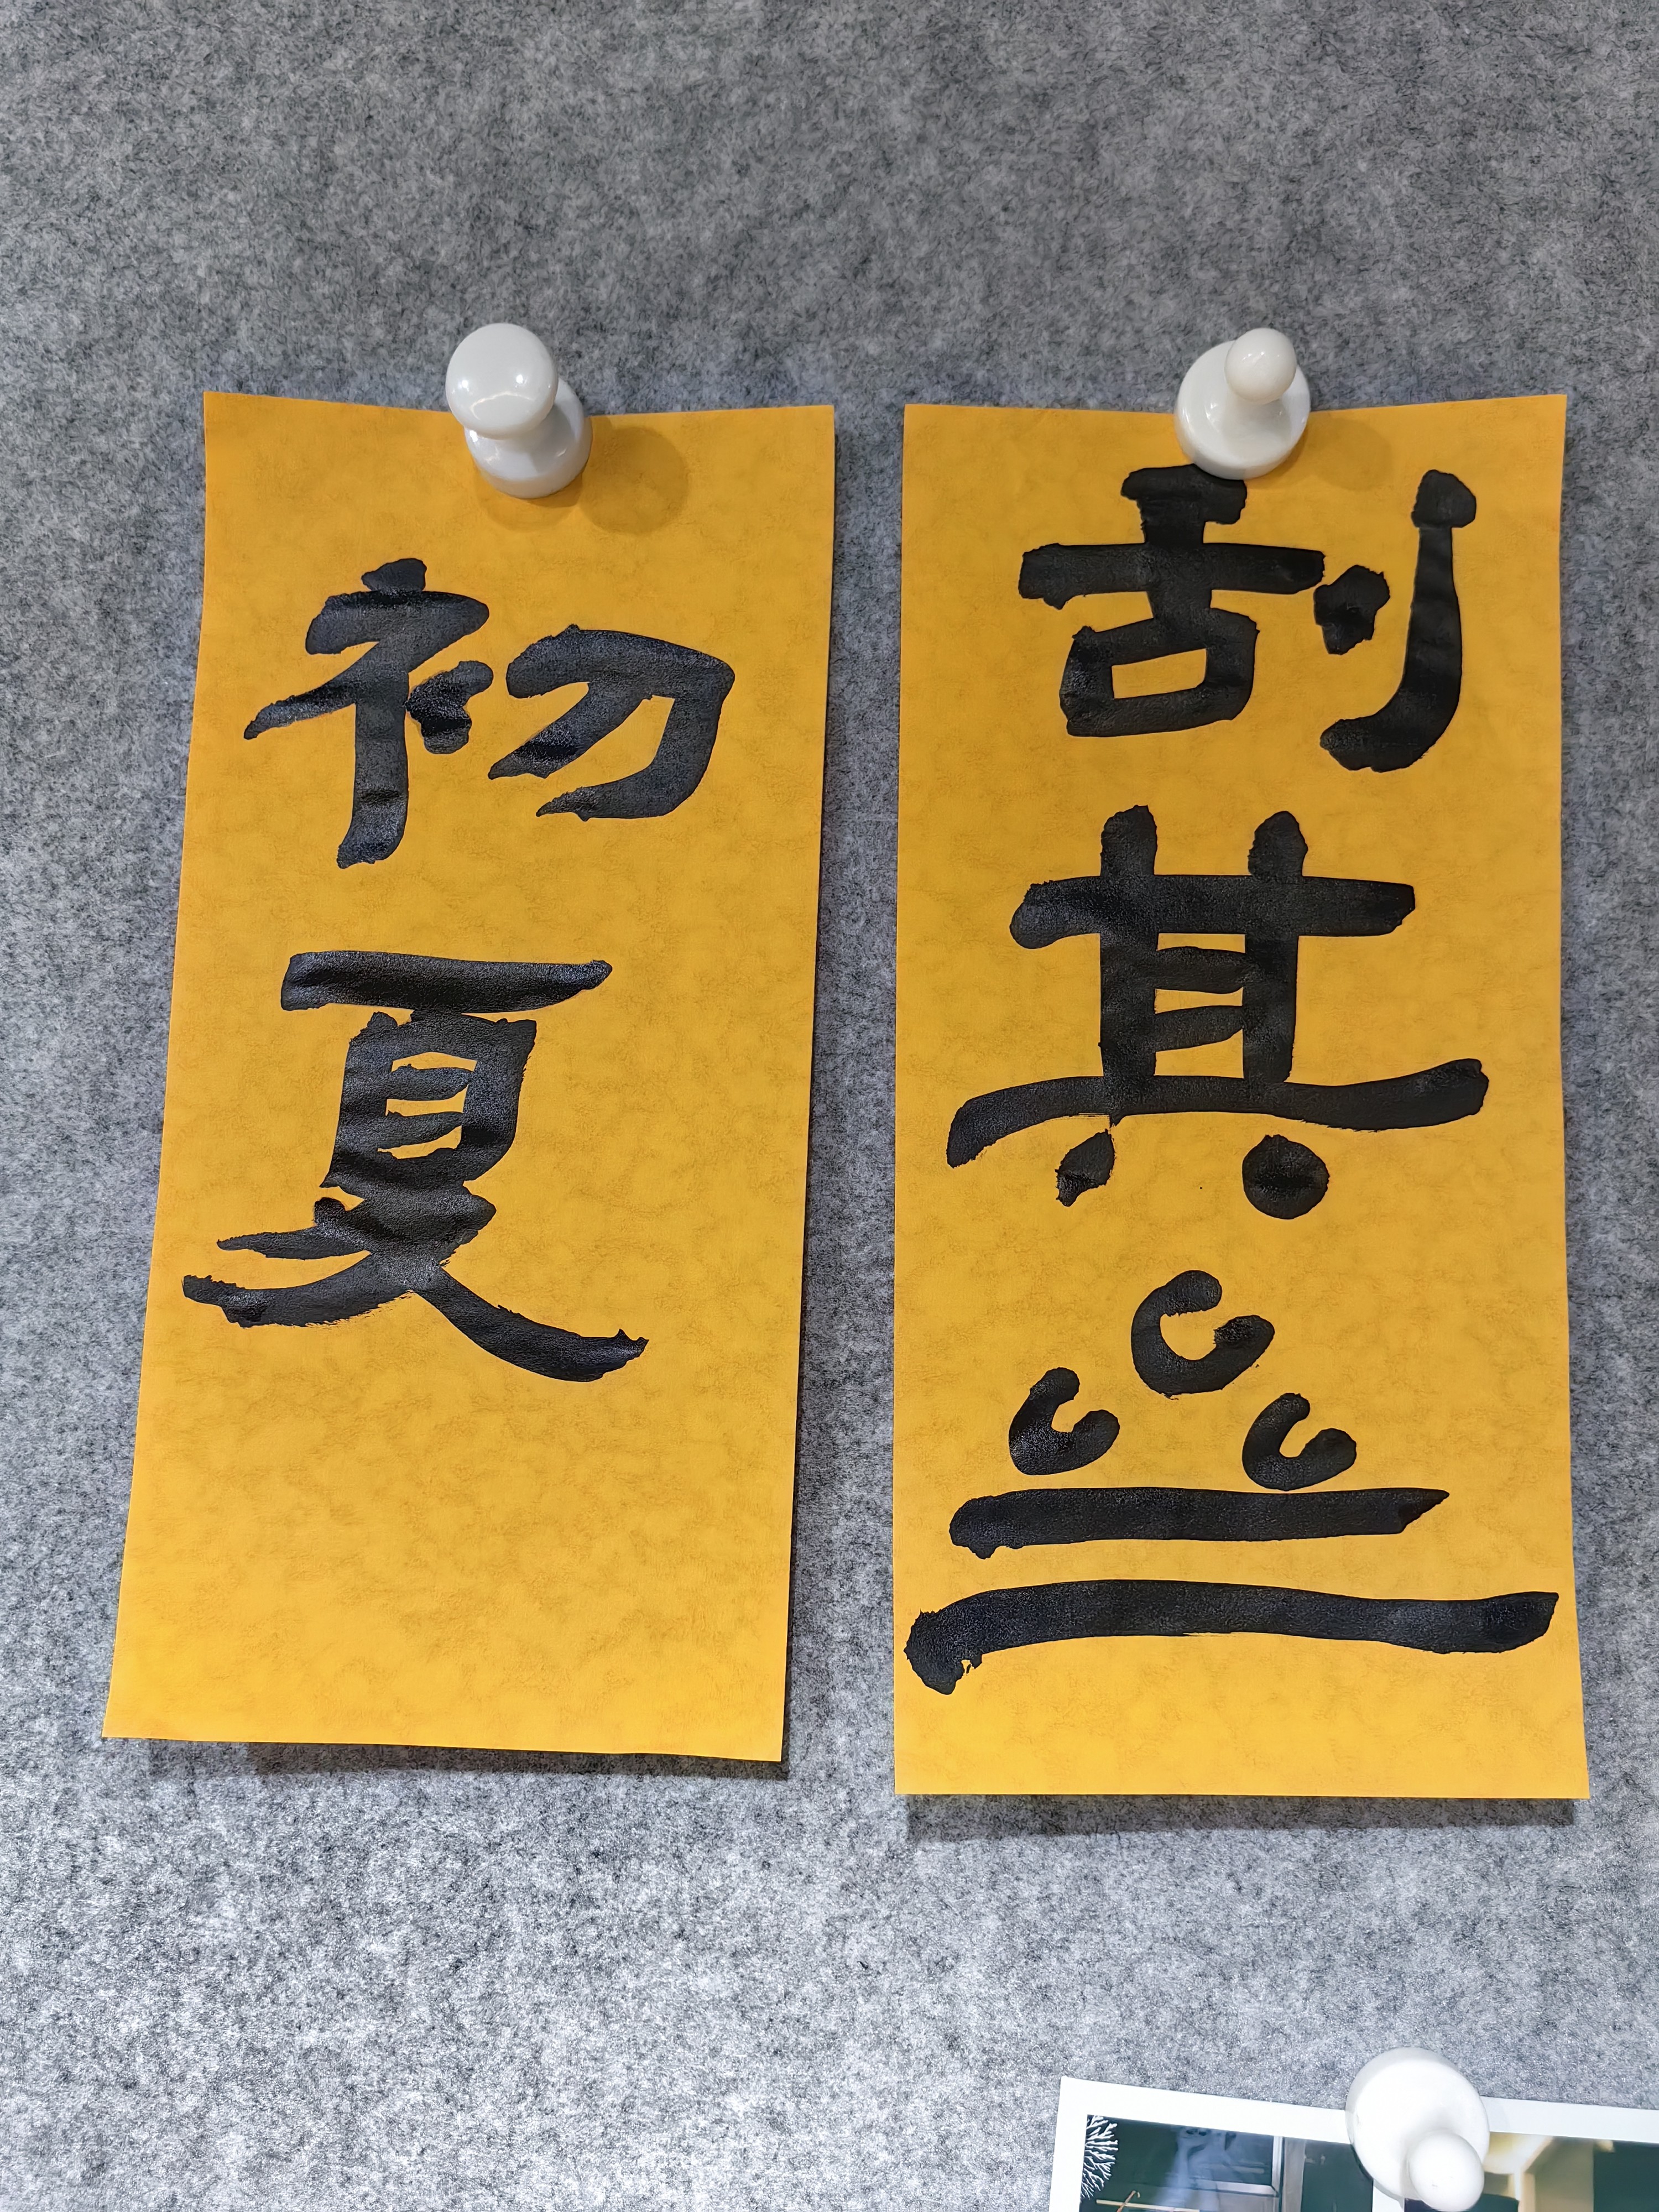 刮其
初夏